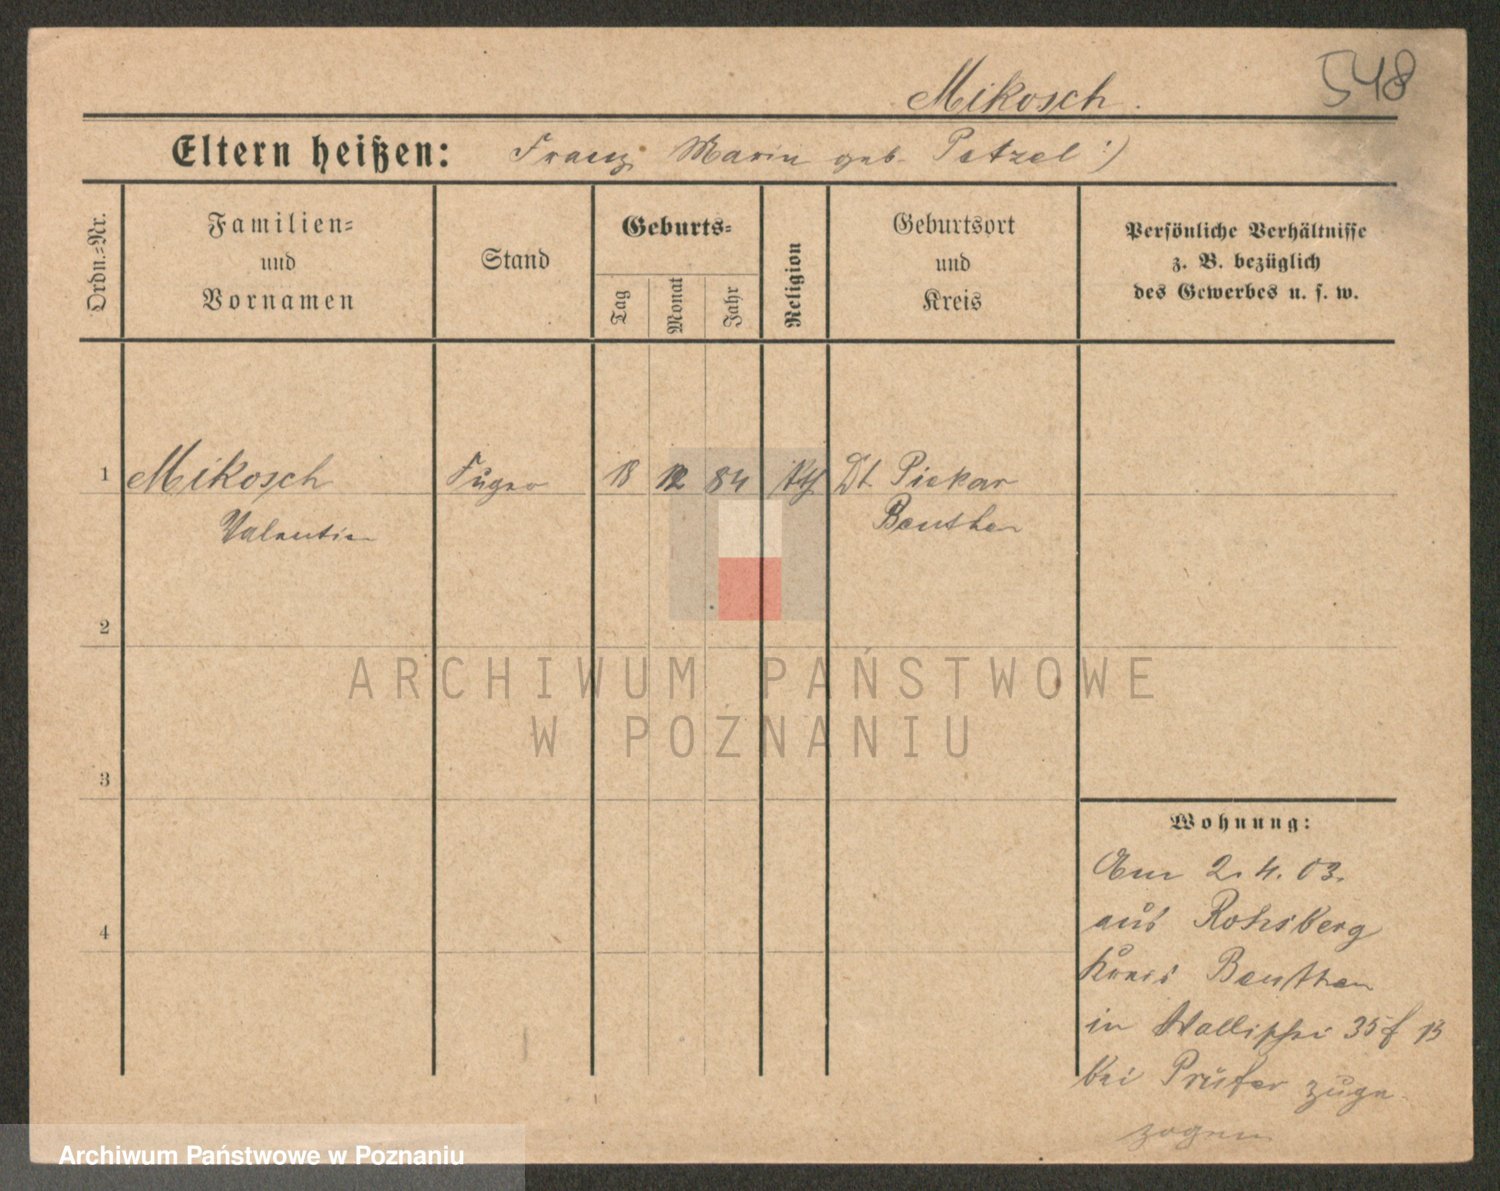 548
Mikosch.
Eltern heißen: Franz Marie geb. Petzel :)
Ordn.=Nr.
Familien=
und
Vornamen
Stand
Geburts=
Tag
Monat
Jahr
Religion
Geburtsort
und
Kreis
Persönliche Verhältnisse
z. B. bezüglich
des Gewerbes u. s. w.
1 Mikosch 18 12 84 kth Dt. Piekar
Valentin Beuthen
2
ARCHIWUM PAŃSTWOWE
W POZNANIU
3
Wohnung:
Am 2.4.03.
aus Rohsberg
4
Kreis Beuthen
in 35f B
bei Prüfer zuge-
zogen
Archiwum Państwowe w Poznaniu